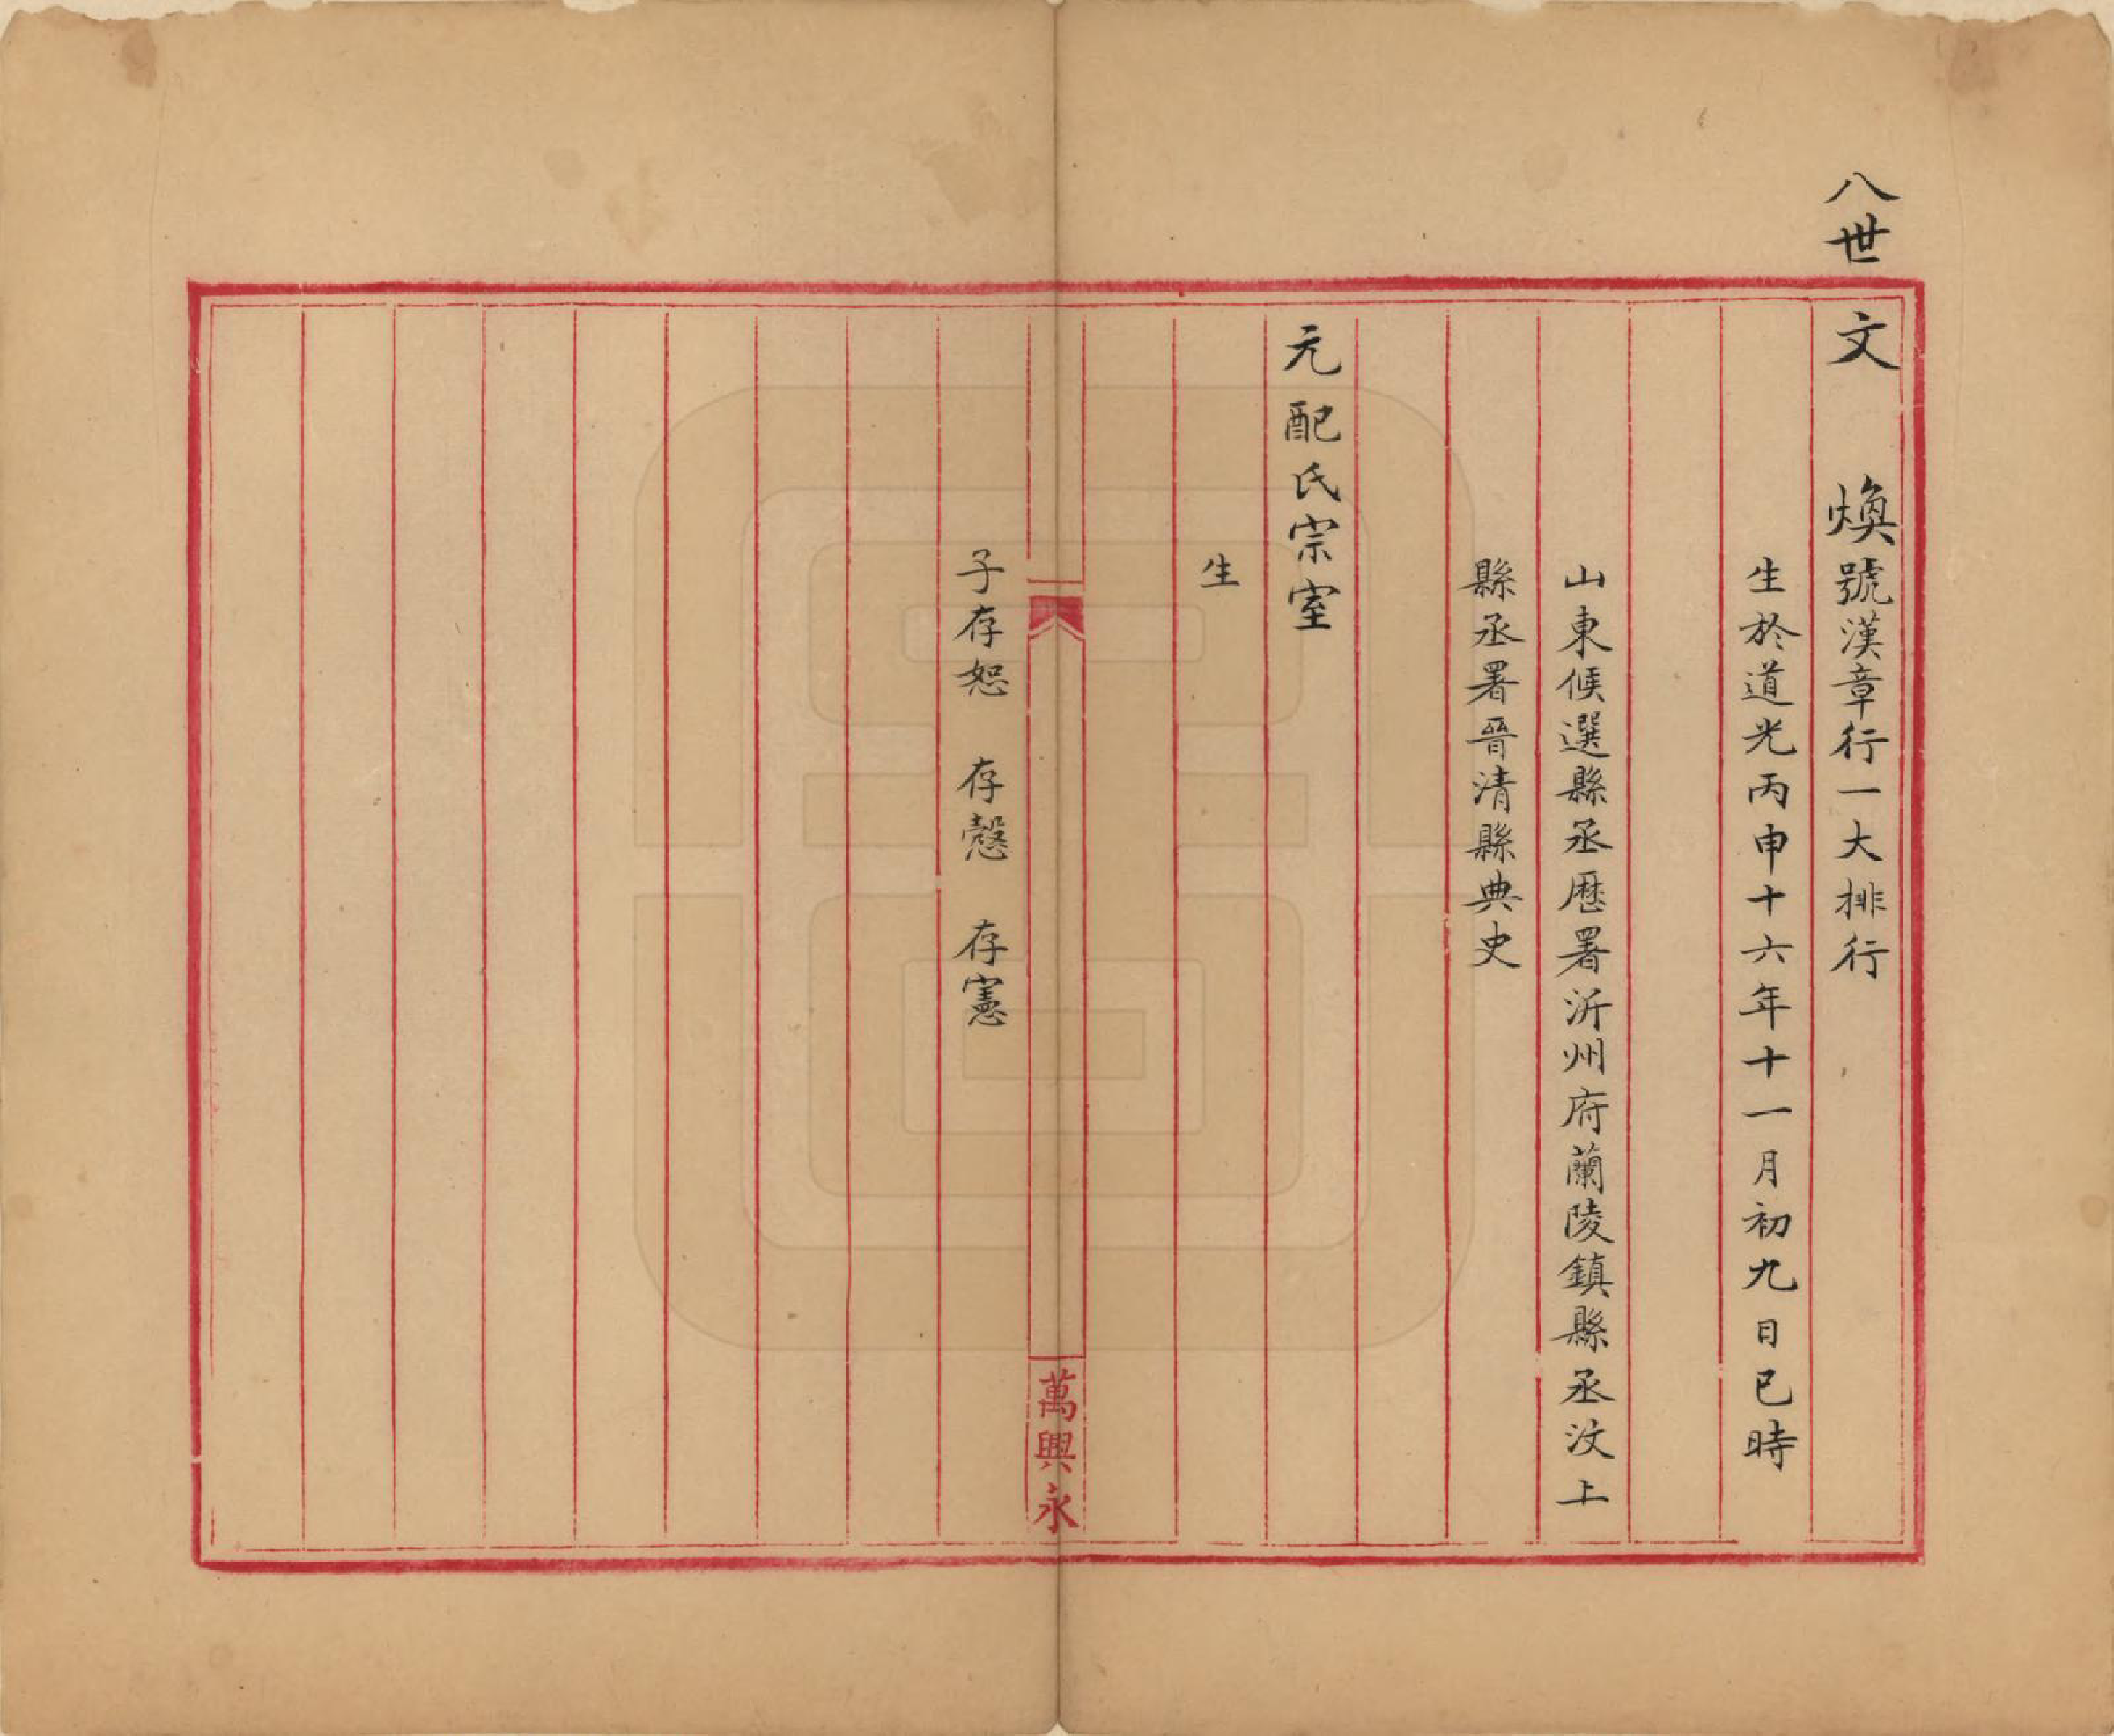 八世文　煥號漢章行一大排行
生於道光丙申十六年十一月初九日巳時
山東候選縣丞歷署沂州府蘭陵鎮縣丞汶上
縣丞署晉清縣典史
元配氏宗室
生
萬興永
子存恕　存慤　存憲